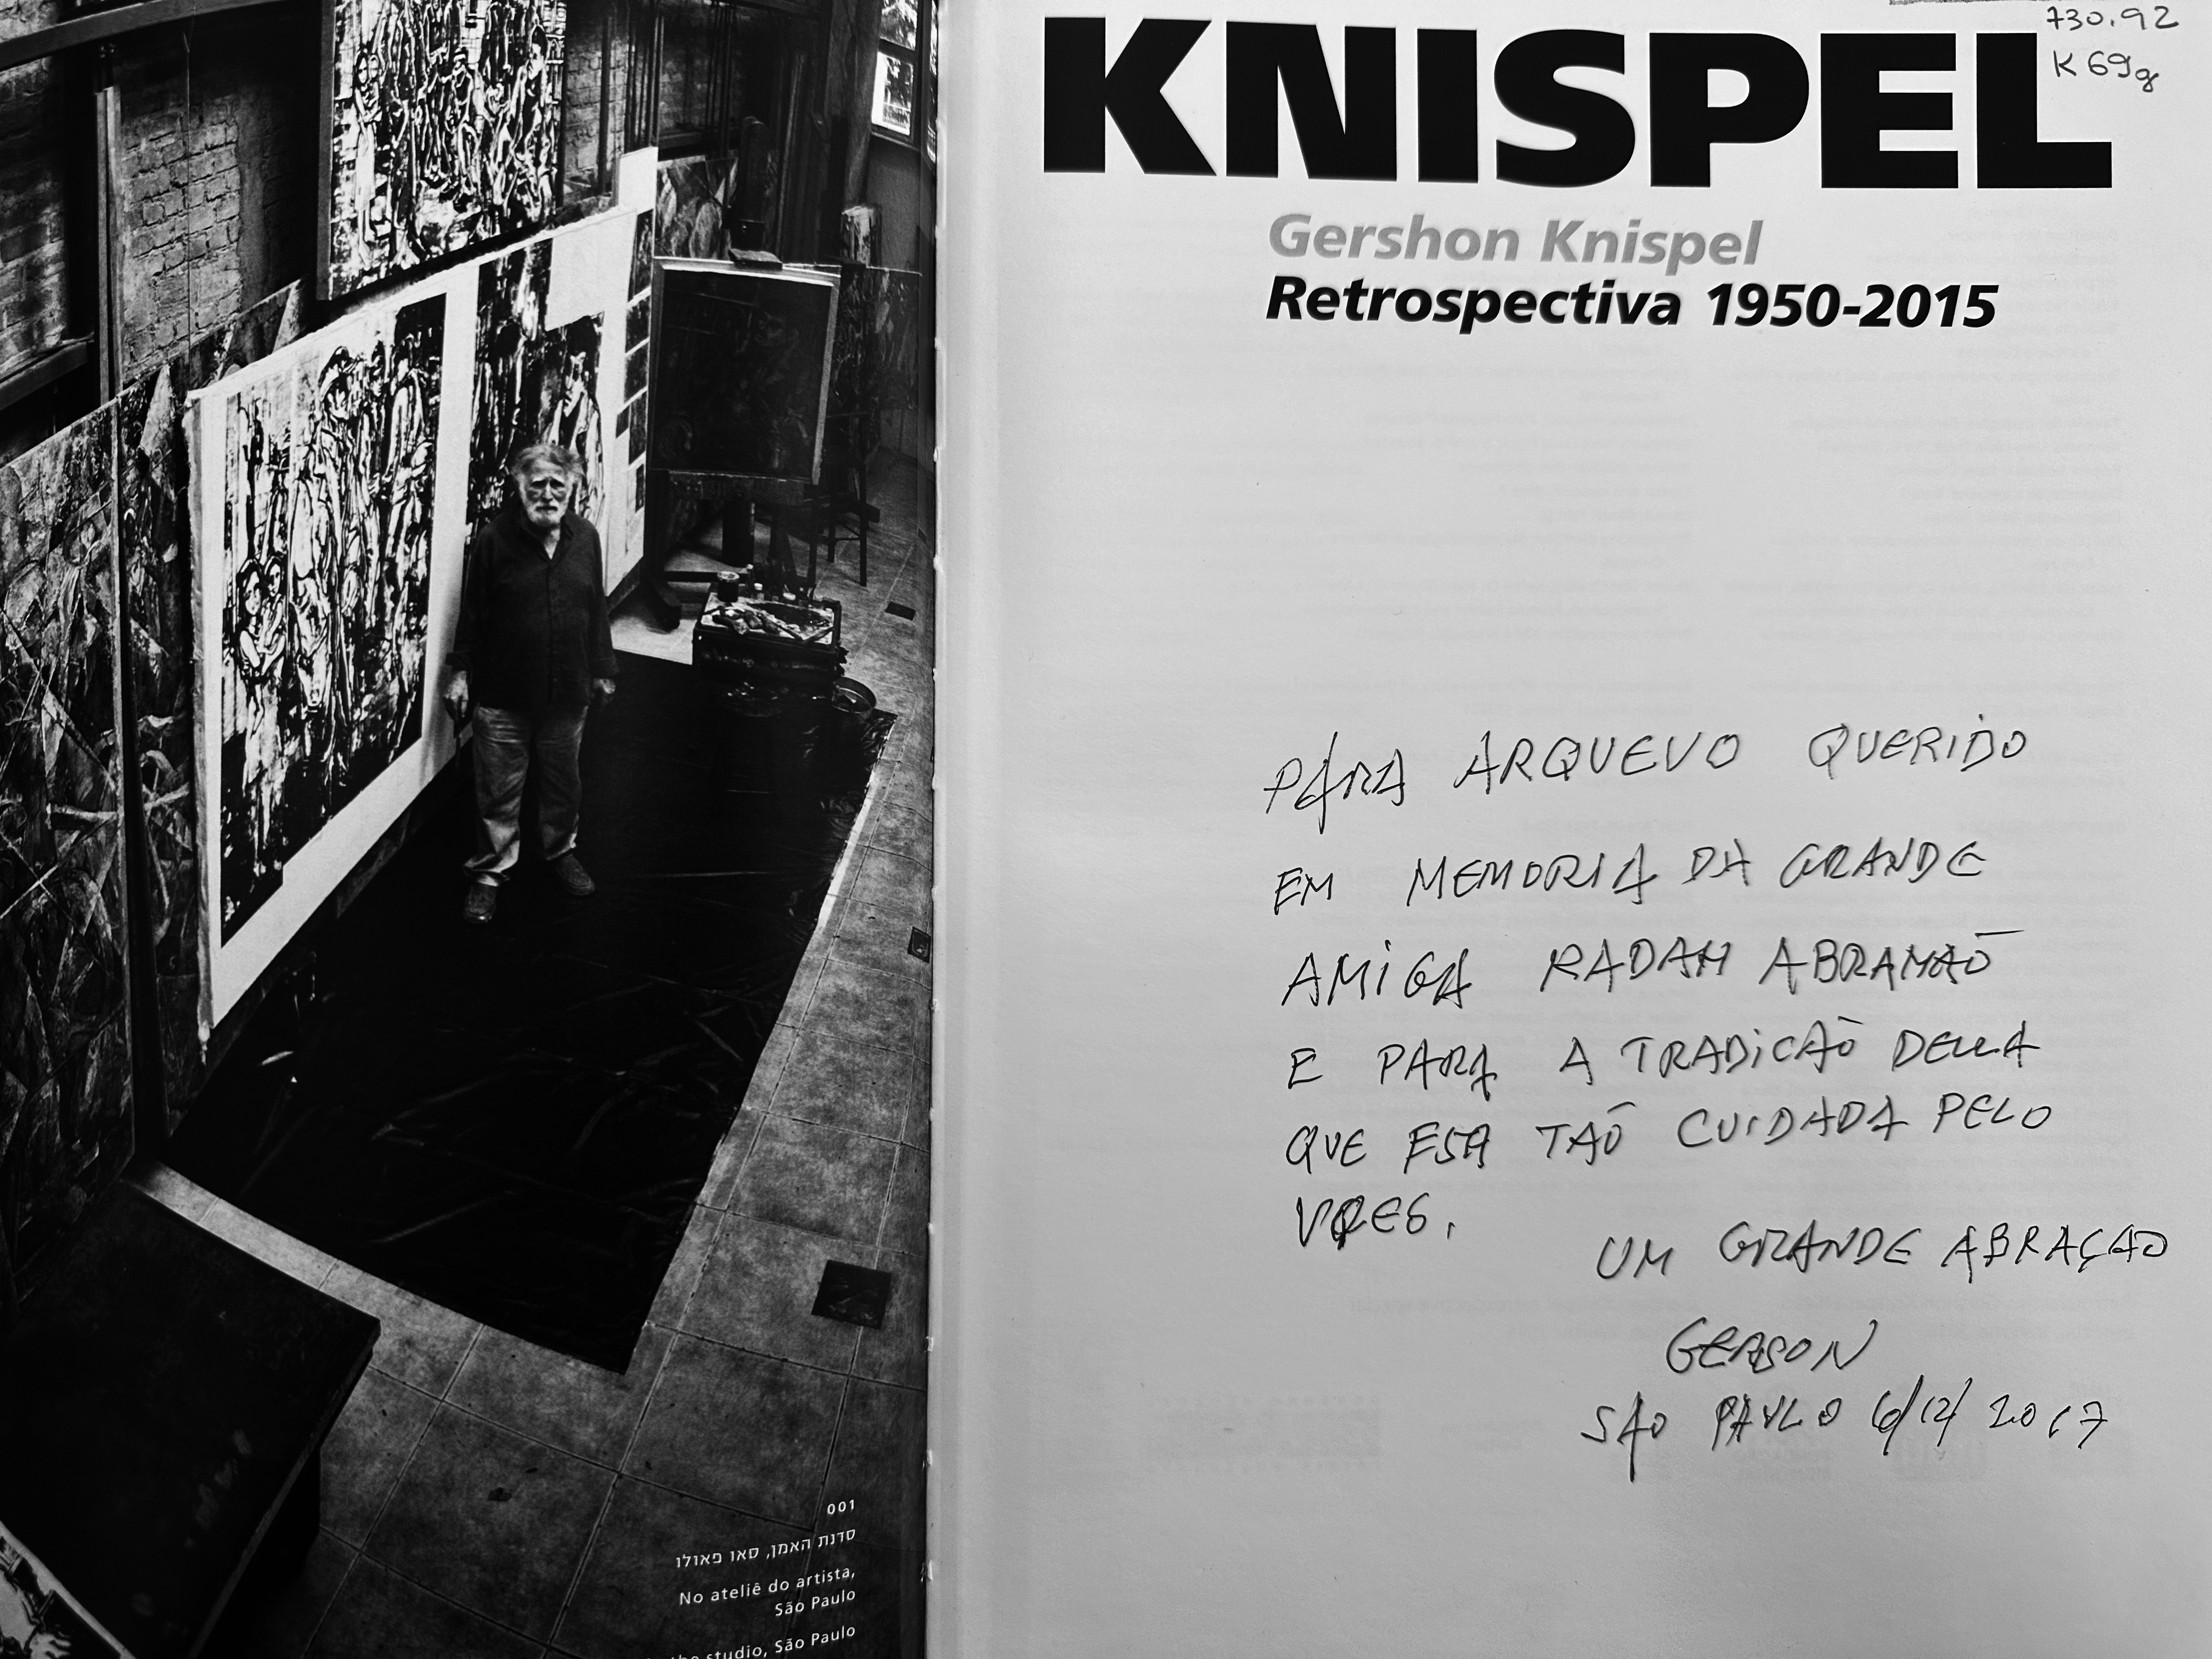 001
סדנת האמן, סאו פאולו
No ateliê do artista,
São Paulo
the studio, São Paulo
KNISPEL
730.92
K69g
Gershon Knispel
Retrospectiva 1950-2015
PARA ARQUEVO QUERIDO
EM MEMORIA DA GRANDE
AMIGA RADAH ABRAMAÕ
E PARA A TRADICAÕ DELLA
QUE ESA TAÕ CUIDADA PELO
VOCES.
UM GRANDE ABRAÇAO
GERSON
SAO PAULO 6/12/2017